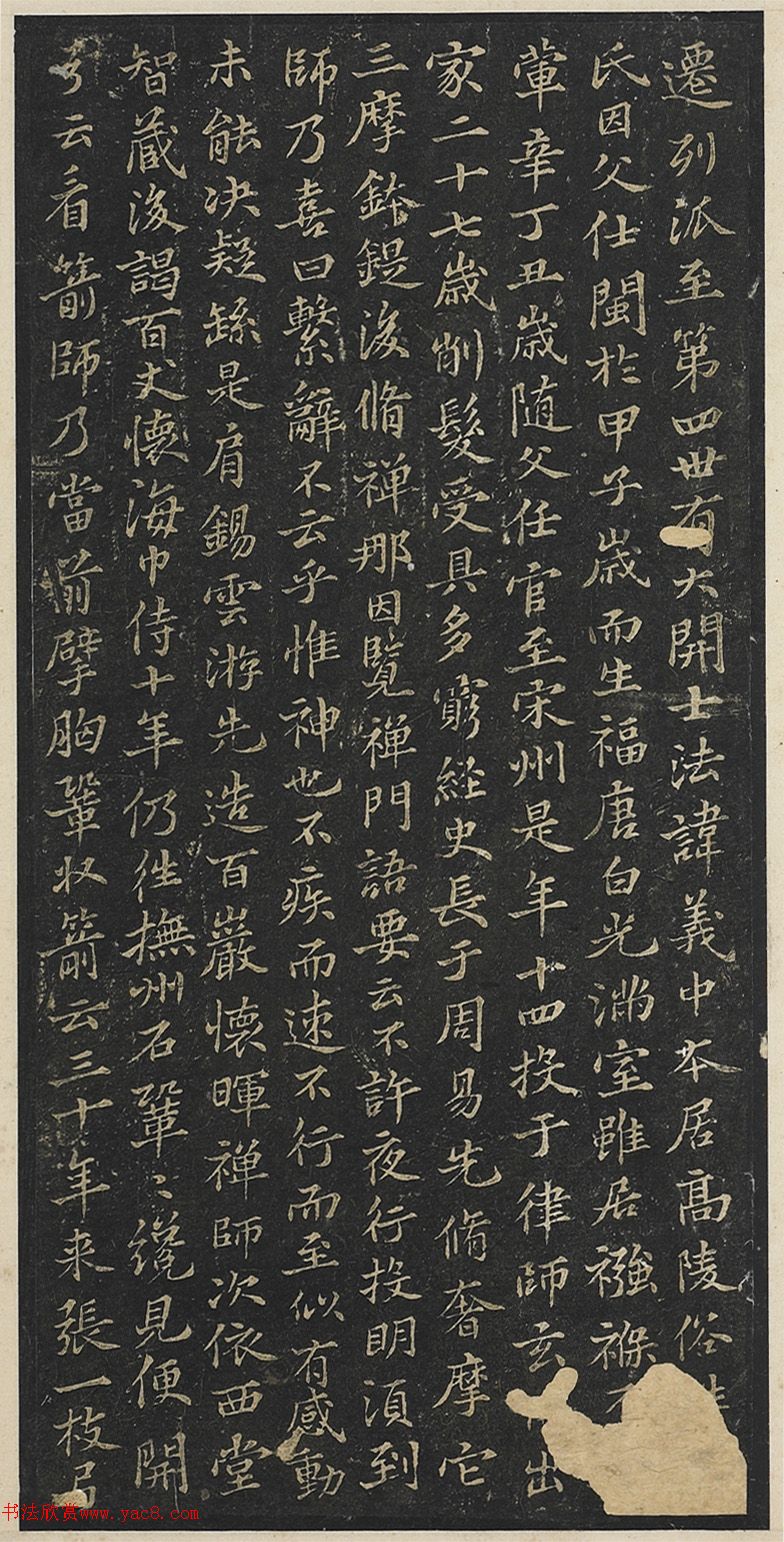 遷列派至第四世有大開士法諱義中本居高陵俗
氏因父仕閩於甲子歲而生福唐白光滿室雖居襁褓不
葷辛丁丑歲随父任官至宋州是年十四投于律師玄出
家二十七歲削髮受具多窮経史長于周易先脩奢摩它
三摩鉢鍉後脩禅那因覽禅門語要云不許夜行投明湏到
師乃喜曰繫辭不云乎惟神也不疾而速不行而至似有感動
未能决疑繇是肩錫雲游先造百巖懷暉禅師次依西堂
智蔵後謁百丈懷海巾侍十年仍往撫州石鞏〻纔見便開
弓云看箭師乃當前擘胸鞏收箭云三十年来張一枝弓
书法欣赏www.yac8.com